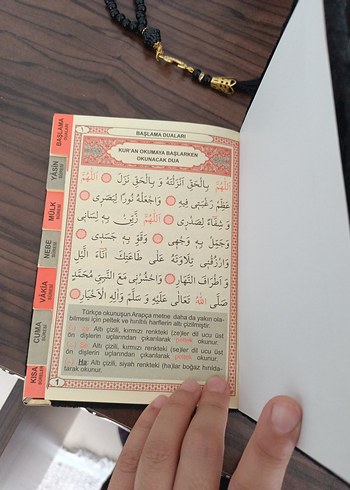 BAŞLAMA DUALARI
YÂSİN SÛRESİ
MÜLK SÛRESİ
NEBE SÛRESİ
VÂKIA SÛRESİ
CUMA SÛRESİ
KISA SÛRELER
1
BAŞLAMA DUALARI
KUR'AN OKUMAYA BAŞLARKEN
OKUNACAK DUA
اَللّٰهُمَّ بِالْحَقِّ اَنْزَلْتَهُ وَ بِالْحَقِّ نَزَلَ اَللّٰهُمَّ
عَظِّمْ رَغْبَتِى فِيهِ وَاجْعَلْهُ نُورًا لِبَصَرِى
وَ شِفَاءً لِصَدْرِى اَللّٰهُمَّ زَيِّنْ بِهِ لِسَانِى
وَجَمِّلْ بِهِ وَجْهِى وَقَوِّ بِهِ جَسَدِى
وَارْزُقْنِى تِلَاوَتَهُ عَلٰى طَاعَتِكَ اٰنَاءَ الَّيْلِ
وَ اَطْرَافَ النَّهَارِ وَاحْشُرْنِى مَعَ النَّبِىِّ مُحَمَّدٍ
صَلَّى اللهُ تَعَالٰى عَلَيْهِ وَ سَلَّمَ وَاٰلِهِ الْاَخْيَارِ
Türkçe okunuşun Arapça metne daha da yakın ola-
bilmesi için peltek ve hırıltılı harflerin altı çizilmiştir.
Altı çizili, kırmızı renkteki (ze)ler dil ucu üst
ön dişlerin uçlarından çıkarılarak peltek okunur.
Altı çizili, kırmızı renkteki (se)ler dil ucu üst
ön dişlerin uçlarından çıkarılarak peltek okunur.
Ha: Altı çizili, siyah renkteki (ha)lar boğaz hırılda-
tarak okunur.
1